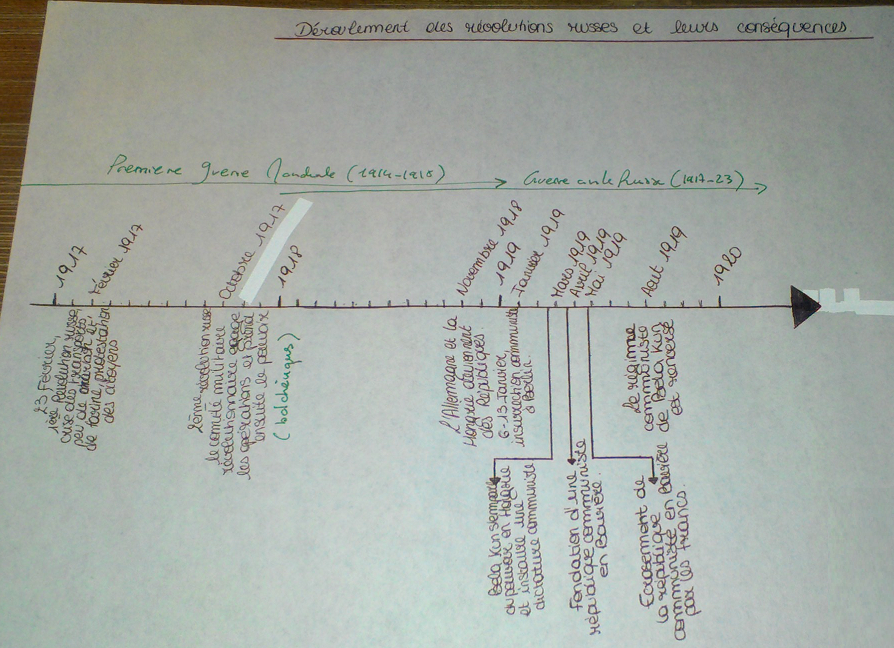 Déroulement des révolutions russes et leurs conséquences
Première guerre Mondiale (1914-1918)
Guerre civile Russe (1917-23)
1917
Février 1917
Octobre 1917
1918
Novembre 1918
1919
Janvier 1919
Mars 1919
Avril 1919
Mai 1919
Aout 1919
1920
23 Février,
1ère Révolution russe
crise des transports,
peu de charbon et
de farine, protestation
des citoyens
2ème révolution russe
le comité militaire
révolutionnaire engage
les opérations et prend
ensuite le pouvoir
(bolchéviques)
L'Allemagne et la
Hongrie deviennent
des Républiques.
6-13 Janvier
insurrection communiste
à Berlin.
Bela Kun s'empare
du pouvoir en Hongrie
et instaure une
dictature communiste
Fondation d'une
république communiste
en Bavière.
Ecrasement de
la république
communiste en Bavière
par les Francs.
Le régime
communiste
de Bela Kun
est renversé